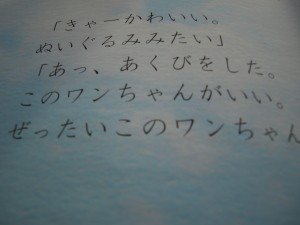 「きゃーかわいい。
ぬいぐるみみたい」
「あっ、あくびをした。
このワンちゃんがいい。
ぜったいこのワンちゃん